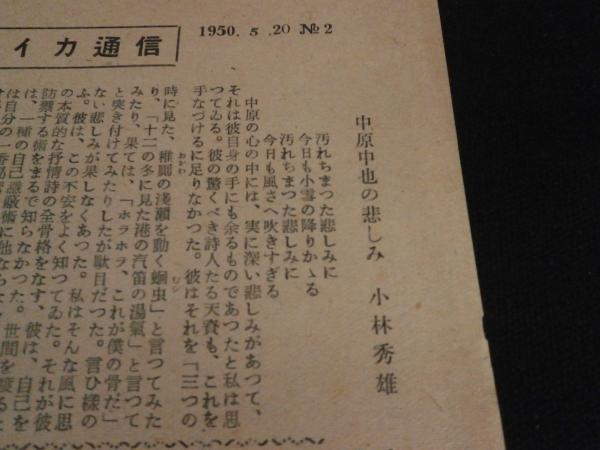 イカ通信
1950. 5 .20 №2
中原中也の悲しみ 小林秀雄
汚れちまつた悲しみに
今日も小雪の降りかゝる
汚れちまつた悲しみに
今日も風さへ吹きすぎる
中原の心の中には、実に深い悲しみがあつて、
それは彼自身の手にも余るものであつたと私は思
つてゐる。彼の驚くべき詩人たる天資も、これを
手なづけるに足りなかつた。彼はそれを「三つの
時に見た、稚厠の浅瀬を動く蛔虫」と言つてみた
り、「十二の冬に見た港の汽笛の湯氣」と言つて
みたり、果ては、「ホラホラ、これが僕の骨だ」
と突き付けてみたりしたが駄目だつた。言ひ様の
ない悲しみが果しなくあつた。私はそんな風に思
ふ。彼は、この不安をよく知つてゐた。それが彼
の本質的な抒情詩の全骨格をなす。彼は、自己を
防禦する術をまるで知らなかつた。世間を渡ると
は、一種の自己